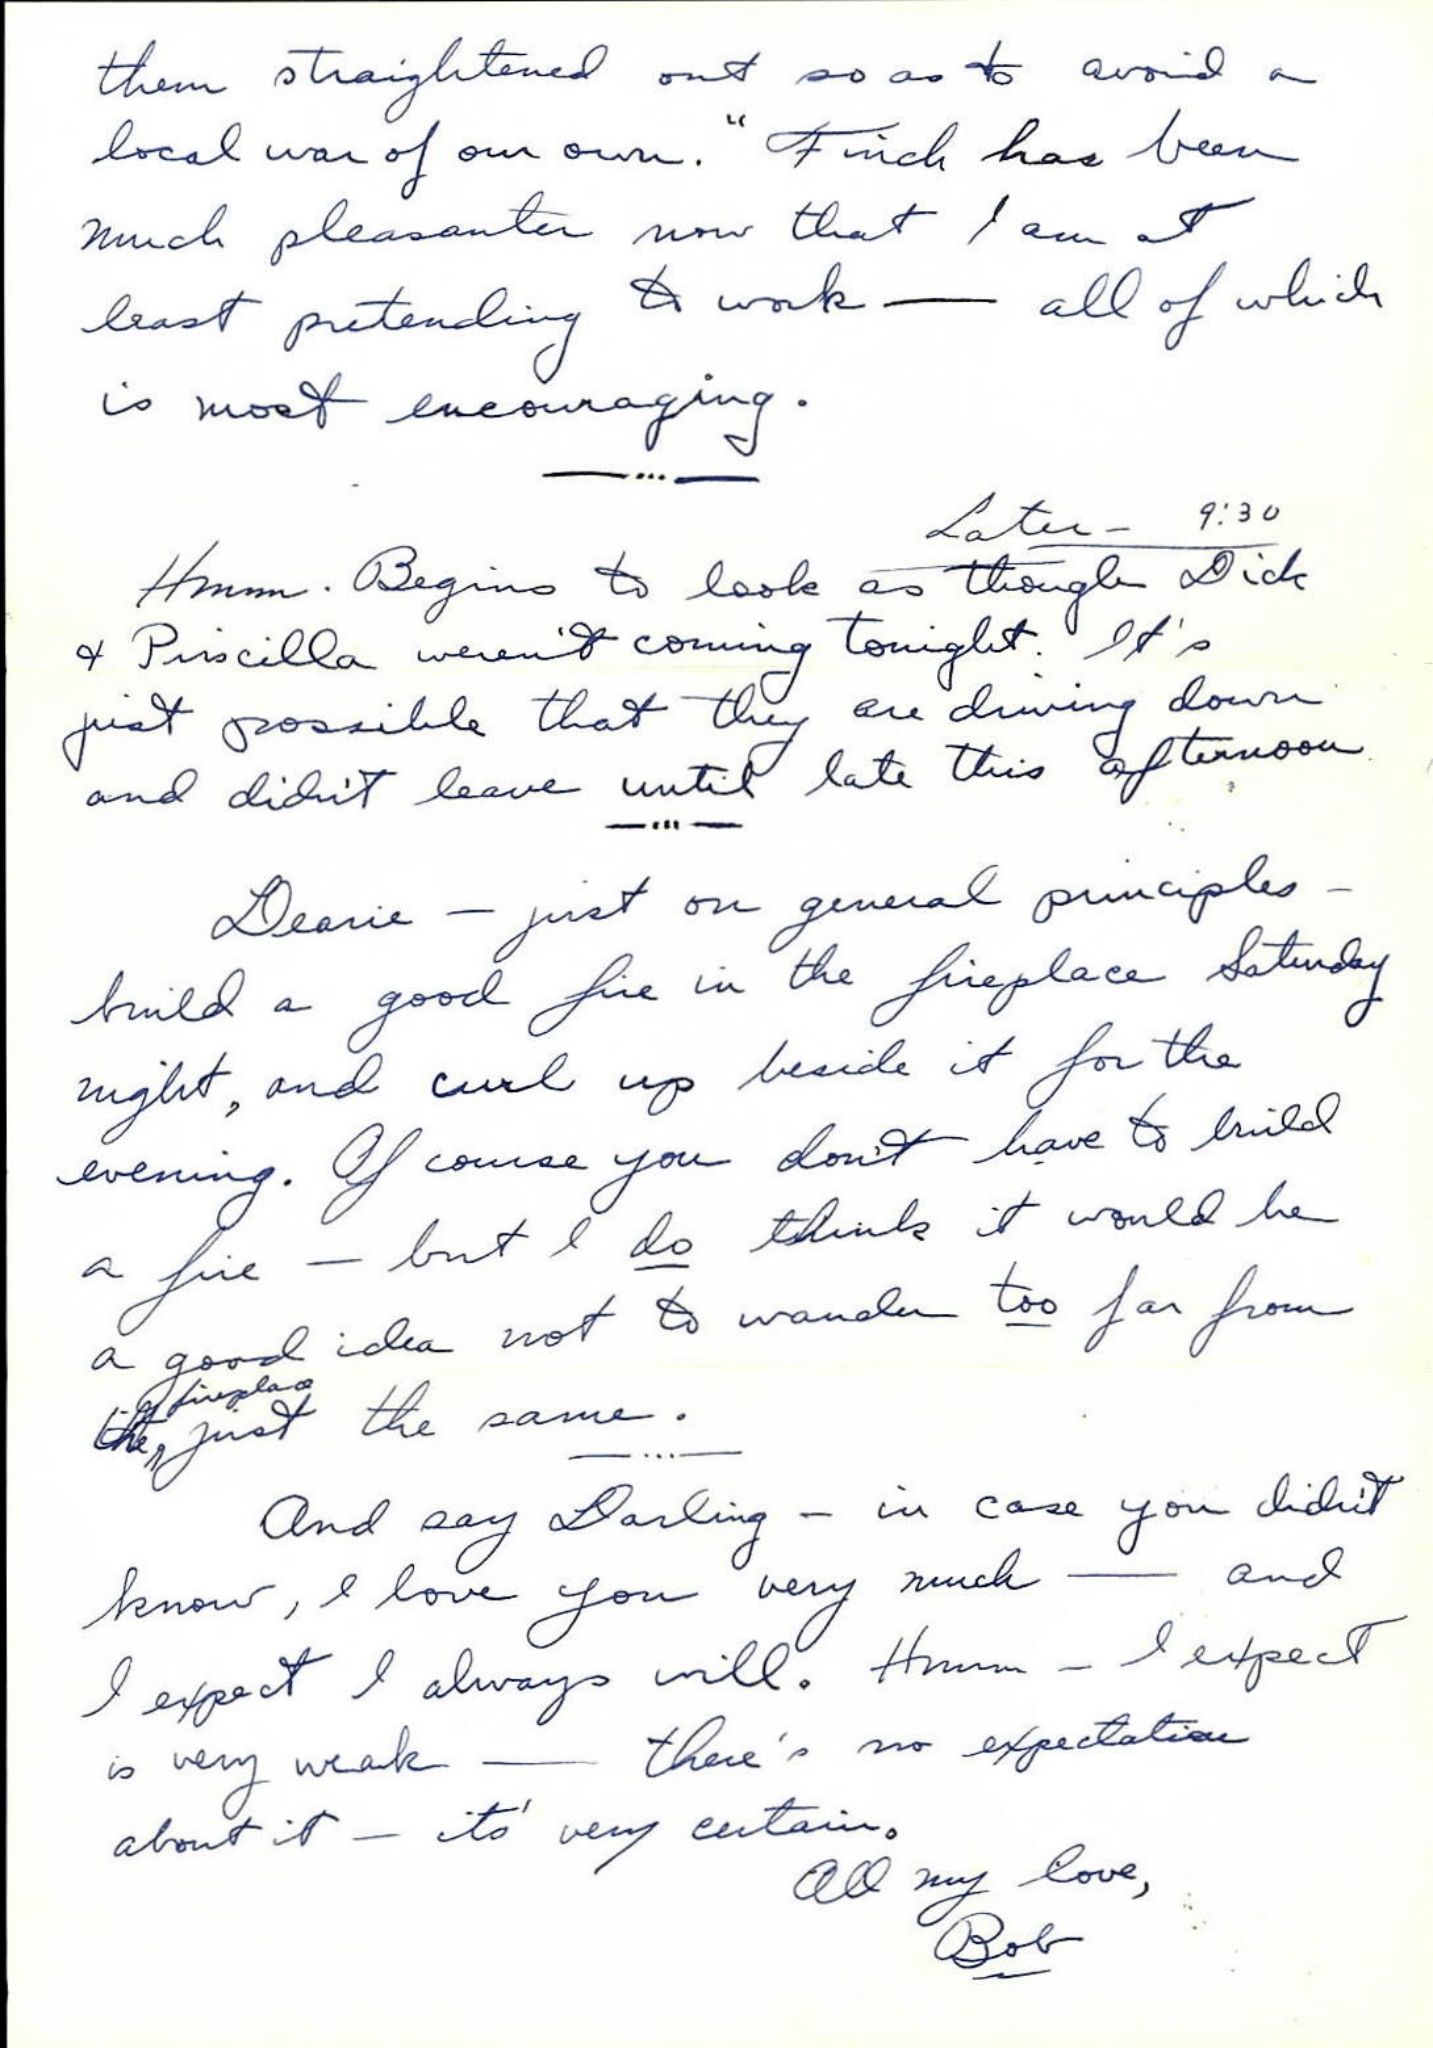 them straightened out so as to avoid a
local war of our own." Finch has been
much pleasanter now that I am at
least pretending to work — all of which
is most encouraging.
Later - 9:30
Hmmm. Begins to look as though Dick
& Priscilla weren't coming tonight. It's
just possible that they are driving down
and didn't leave until late this afternoon.
Dearie — just on general principles -
build a good fire in the fireplace Saturday
night, and curl up beside it for the
evening. Of course you don't have to build
a fire — but I do think it would be
a good idea not to wander too far from
fireplace
the, just the same.
And say Darling - in case you didn't
know, I love you very much — and
I expect I always will. Hmmm - I expect
is very weak — there's no expectation
about it — its' very certain.
All my love,
Bob